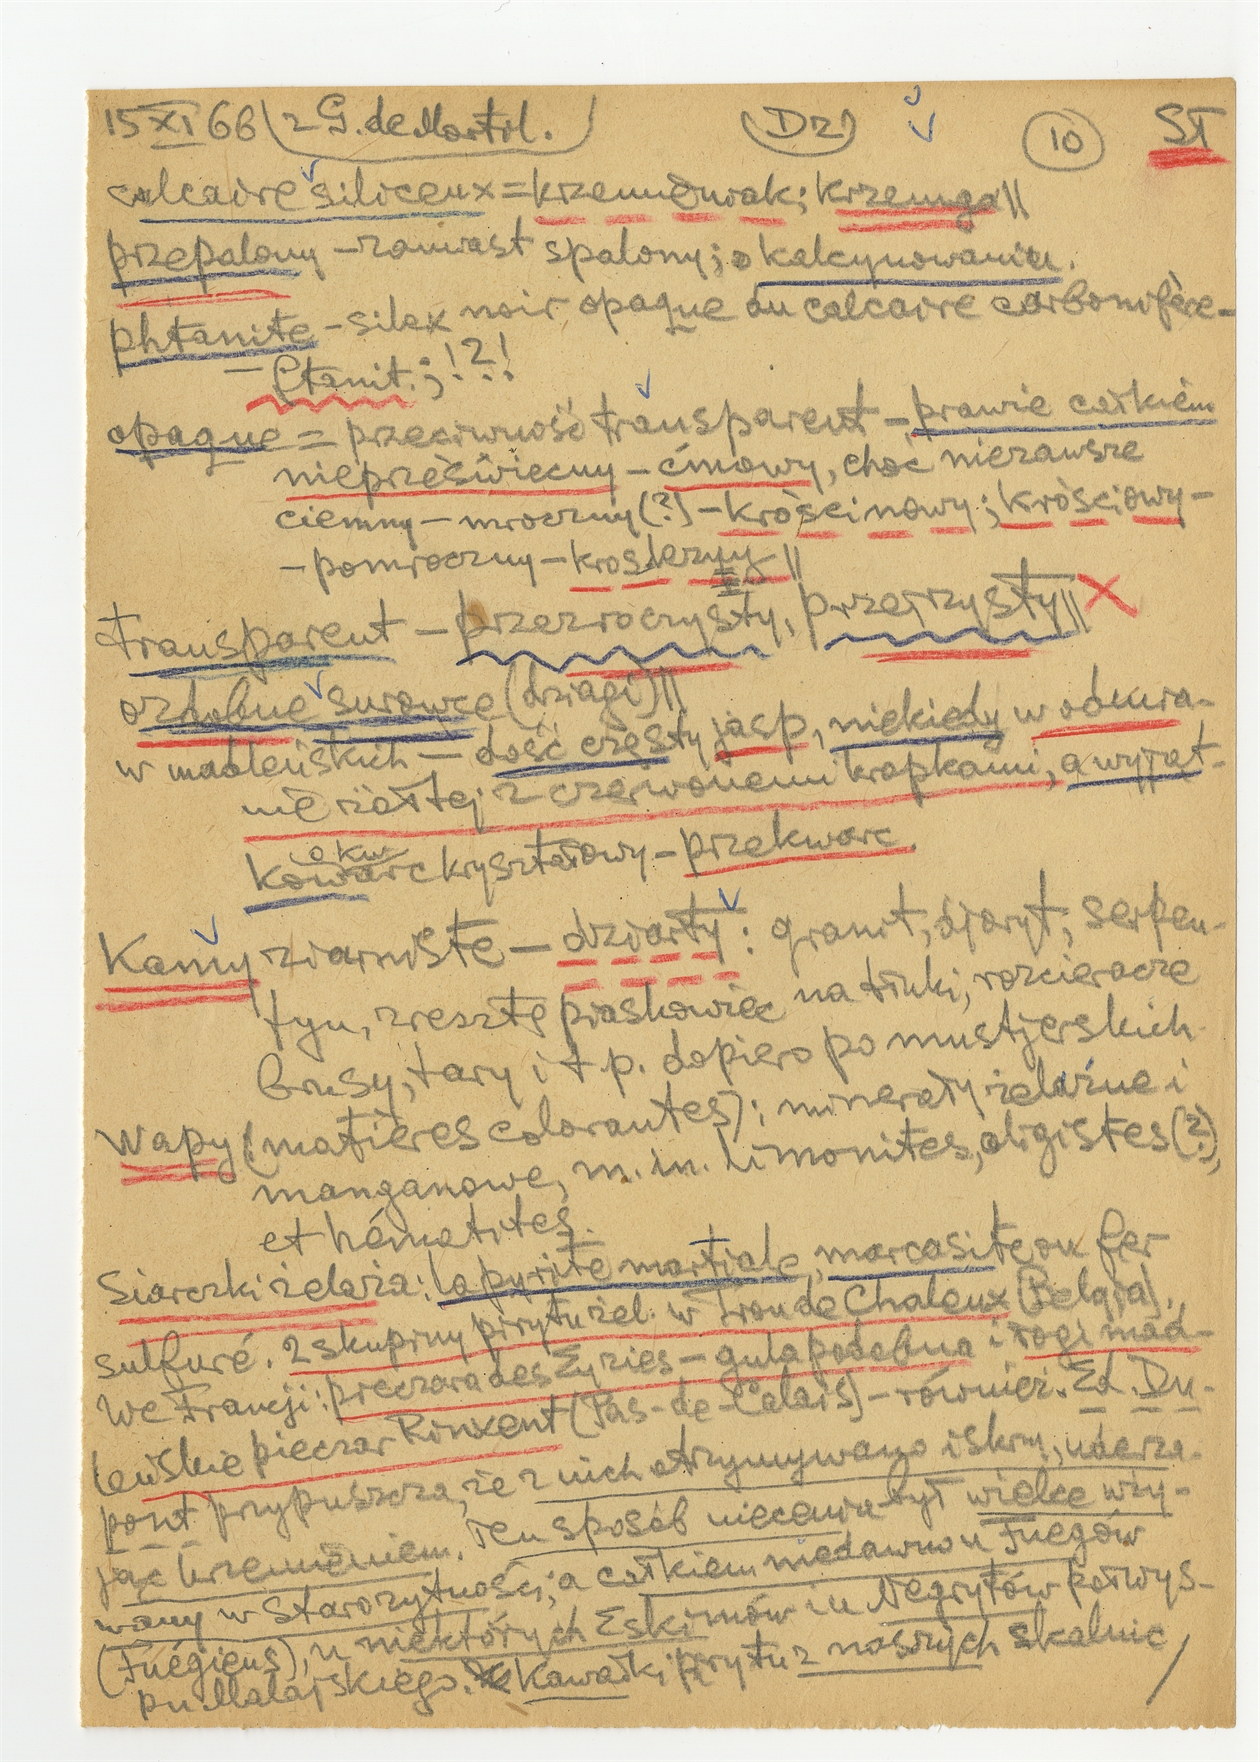 15 XI 66 (z G. de Mortil. (Dz) 10 ST
calcaire siliceux = krzemieniak; krzemyga||
przepalony – zamiast spalony; o kalcynowaniu.
phtanite – silex noir opaque du calcaire carbonifère –
– ftanit.; !?!
opaque = przeciwność transparent – prawie całkiem
nieprzeświecny – ćmowy, choć niezawsze
ciemny – mroczny (?) – krościnowy; krościowy –
– pomroczny –
transparent – przezroczysty, przejrzysty|| X
ozdobne surowce (dziagi)||
w madleńskich – dość częsty jasp, niekiedy w odmia-
nie żółtej z czerwonemi kropkami, a wyjąt-
kowo kw
kwarc kryształowy – przekwarc.
Kamy ziarniste – dziarty: granit, djoryt, serpen-
tyn, zresztą piaskowiec na tłuki, rozcieracze
brusy, tary i t p. dopiero po mustjerskich.
Wapy (matières colorantes); minerały żelaźne i
manganowe, m. in. limonites, oligistes (?),
et hématites.
Siarczki żelaza: la pyrite martiale, marcasite ou fer
sulfuré. 2 skupiny pirytu żel. w Trou de Chaleux (Belgja).
We Francji: pieczara des Eyzies – gula podobna i rogi mad-
leńskie pieczar Rinxent (Pas-de-Calais) – również. Ed. Du-
pont przypuszcza, że z nich otrzymywano iskry, uderza-
jąc krzemieniem. Ten sposób niecenia był wielce uży-
wany w Starożytności; a całkiem niedawno u Fuegów
(Fuégiens), u niektórych Eskimów i u Negrytów półwys-
pu Malajskiego. Kawałki pirytu z naszych skalnic /